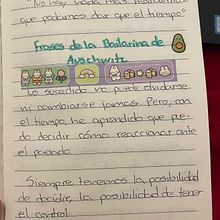 "No hay nada más
que podamos dar que el tiempo"
Frases de la Bailarina de
Auschwitz
Lo sucedido no puede olvidarse
ni cambiarse jamas. Pero, con
el tiempo, he aprendido que pue-
do decidir cómo reaccionar ante
el pasado.
Siempre tenemos la posibilidad
de decidir, la posibilidad de tener
el control.